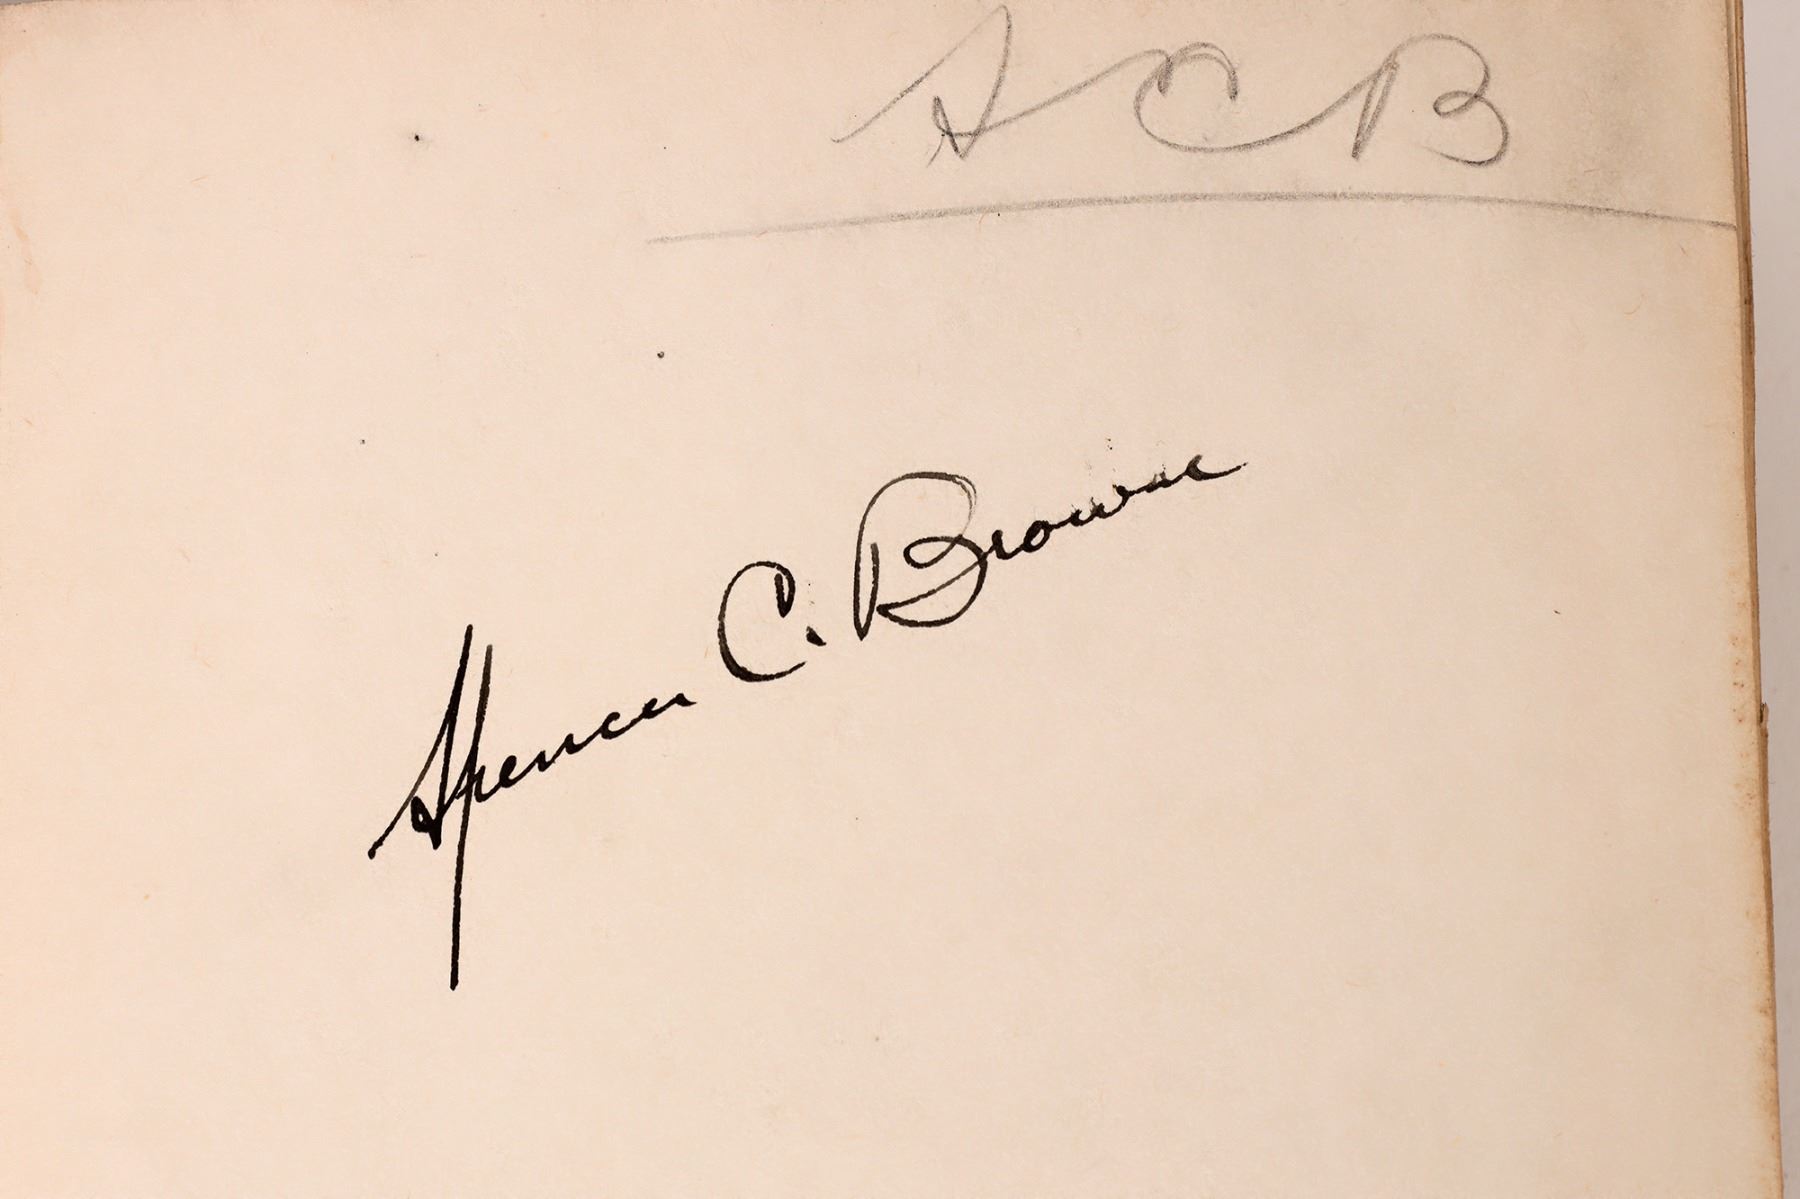 SCB
Spencer C. Browne